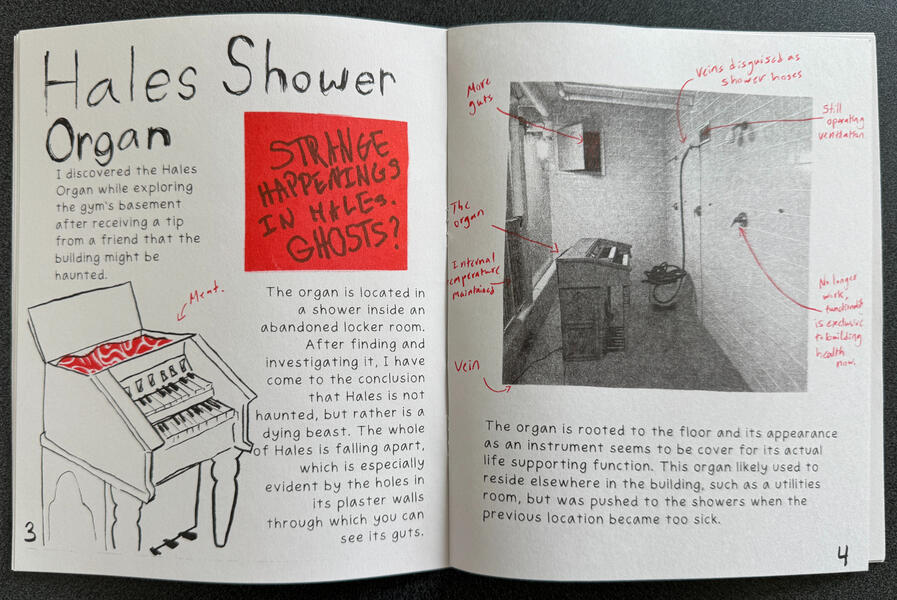 Hales Shower
Organ
I discovered the Hales
Organ while exploring
the gym's basement
after receiving a tip
from a friend that the
building might be
haunted.
STRANGE
HAPPENINGS
IN HALES.
GHOSTS?
Meat.
The organ is located in
a shower inside an
abandoned locker room.
After finding and
investigating it, I have
come to the conclusion
that Hales is not
haunted, but rather is a
dying beast. The whole
of Hales is falling apart,
which is especially
evident by the holes in
its plaster walls
through which you can
see its guts.
3
More
guts
Veins disguised as
shower hoses
Still
operating
ventilation
The
organ
Internal
temperature
maintained
Vein
No longer
work,
is exclusive
to building
health
now.
The organ is rooted to the floor and its appearance
as an instrument seems to be cover for its actual
life supporting function. This organ likely used to
reside elsewhere in the building, such as a utilities
room, but was pushed to the showers when the
previous location became too sick.
4